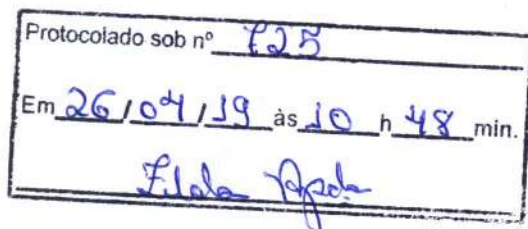 Protocolado sob nº 725
Em 26/04/19 às 10 h 48 min.